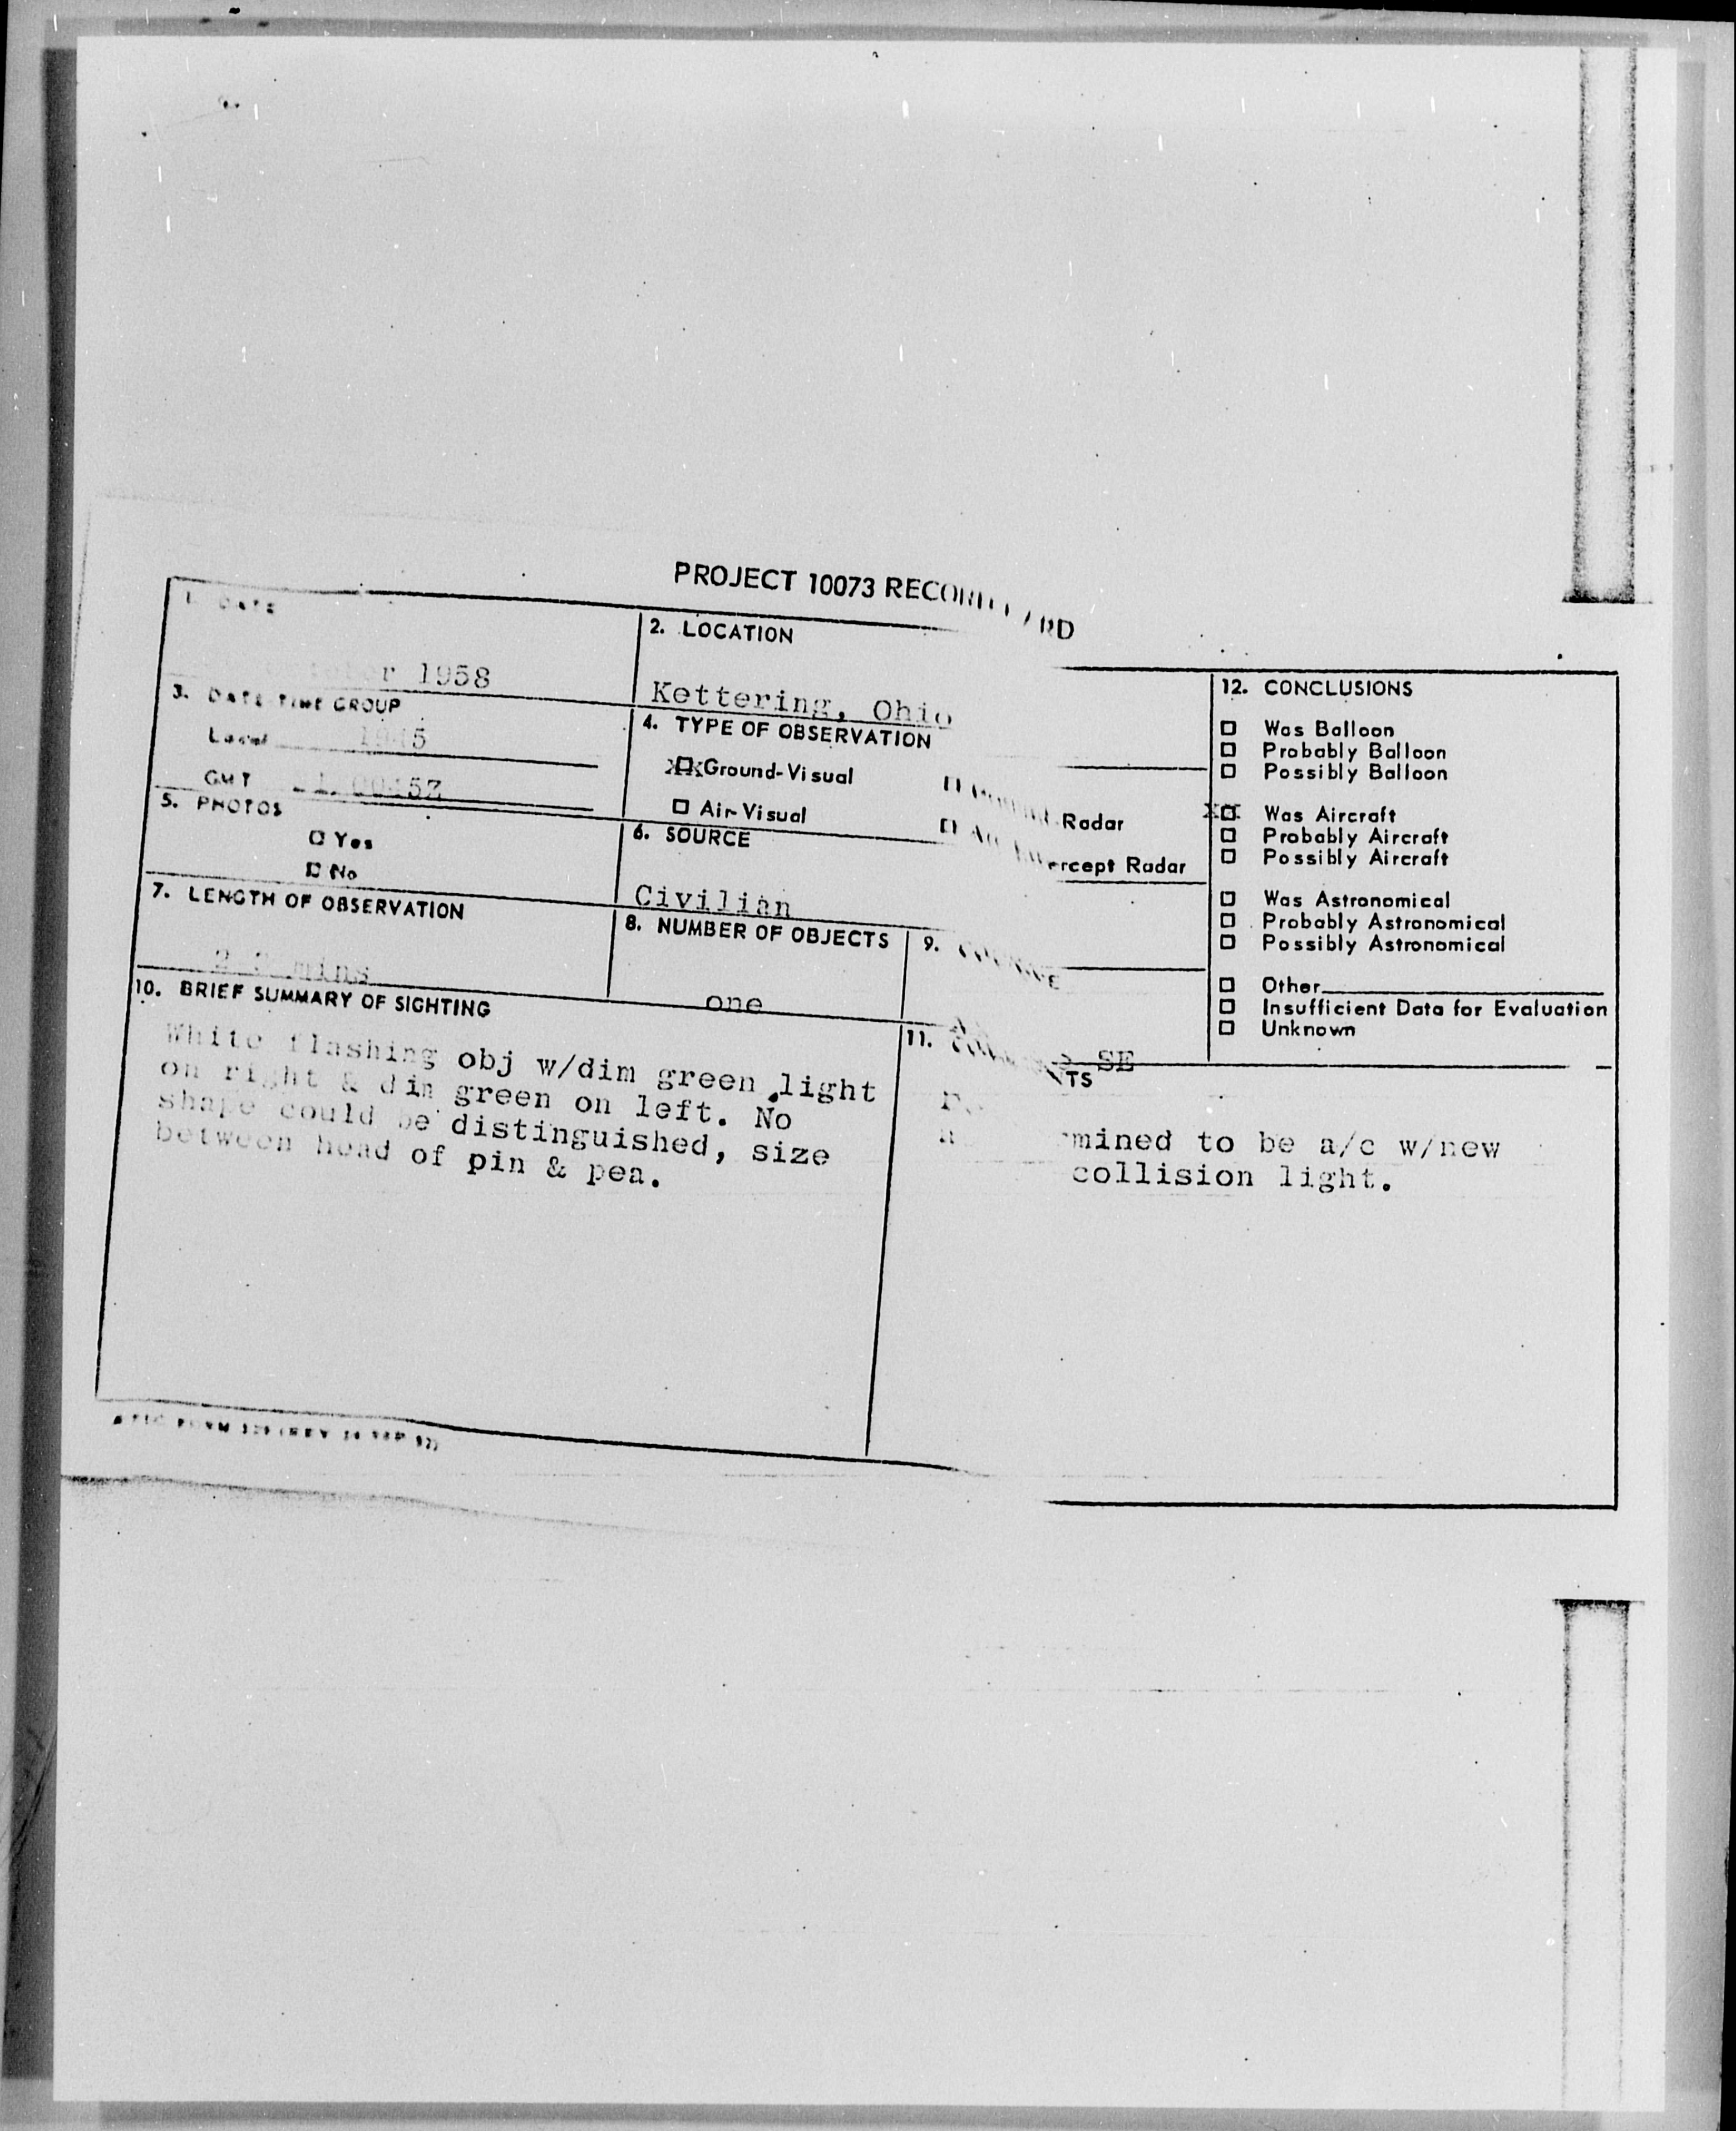 PROJECT 10073 RECORD CARD
1. DATE
1958
2. LOCATION
Kettering, Ohio
3. DATE-TIME GROUP
Local
GMT
4. TYPE OF OBSERVATION
XX Ground-Visual
Radar
Air-Visual
Intercept Radar
5. PHOTOS
Yes
No
6. SOURCE
Civilian
7. LENGTH OF OBSERVATION
mins
8. NUMBER OF OBJECTS
one
9. COURSE
SE
10. BRIEF SUMMARY OF SIGHTING
White flashing obj w/dim green light
on right & dim green on left. No
shape could be distinguished, size
between head of pin & pea.
11. COMMENTS
mined to be a/c w/new
collision light.
12. CONCLUSIONS
Was Balloon
Probably Balloon
Possibly Balloon
XX Was Aircraft
Probably Aircraft
Possibly Aircraft
Was Astronomical
Probably Astronomical
Possibly Astronomical
Other
Insufficient Data for Evaluation
Unknown